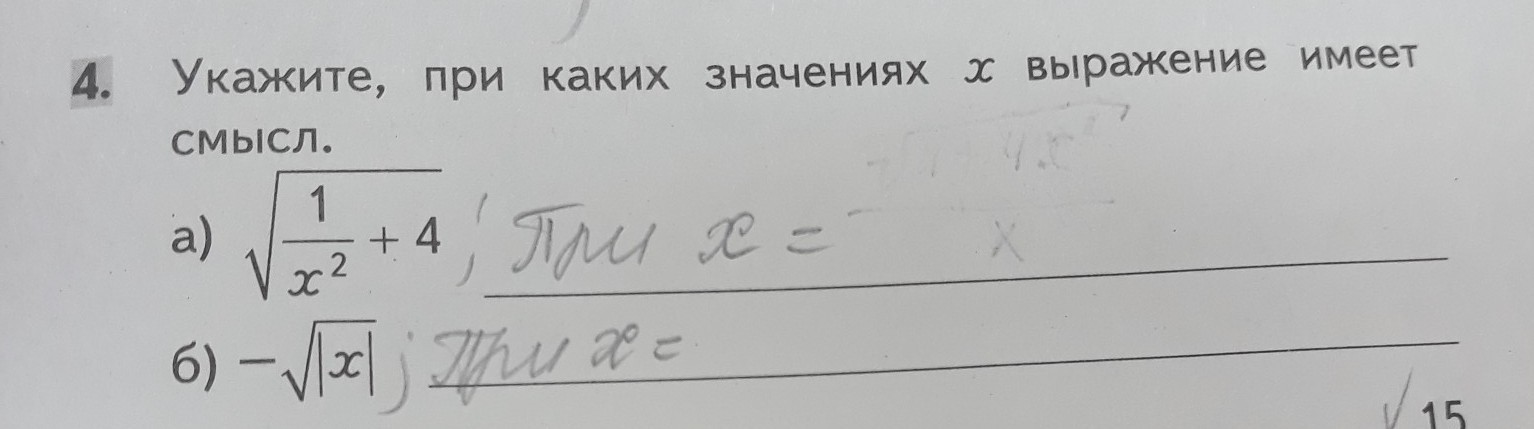 4. Укажите, при каких значениях x выражение имеет
смысл.
а) √(1/x² + 4) ; При x =
б) −√|x| ; при x =
√ 15